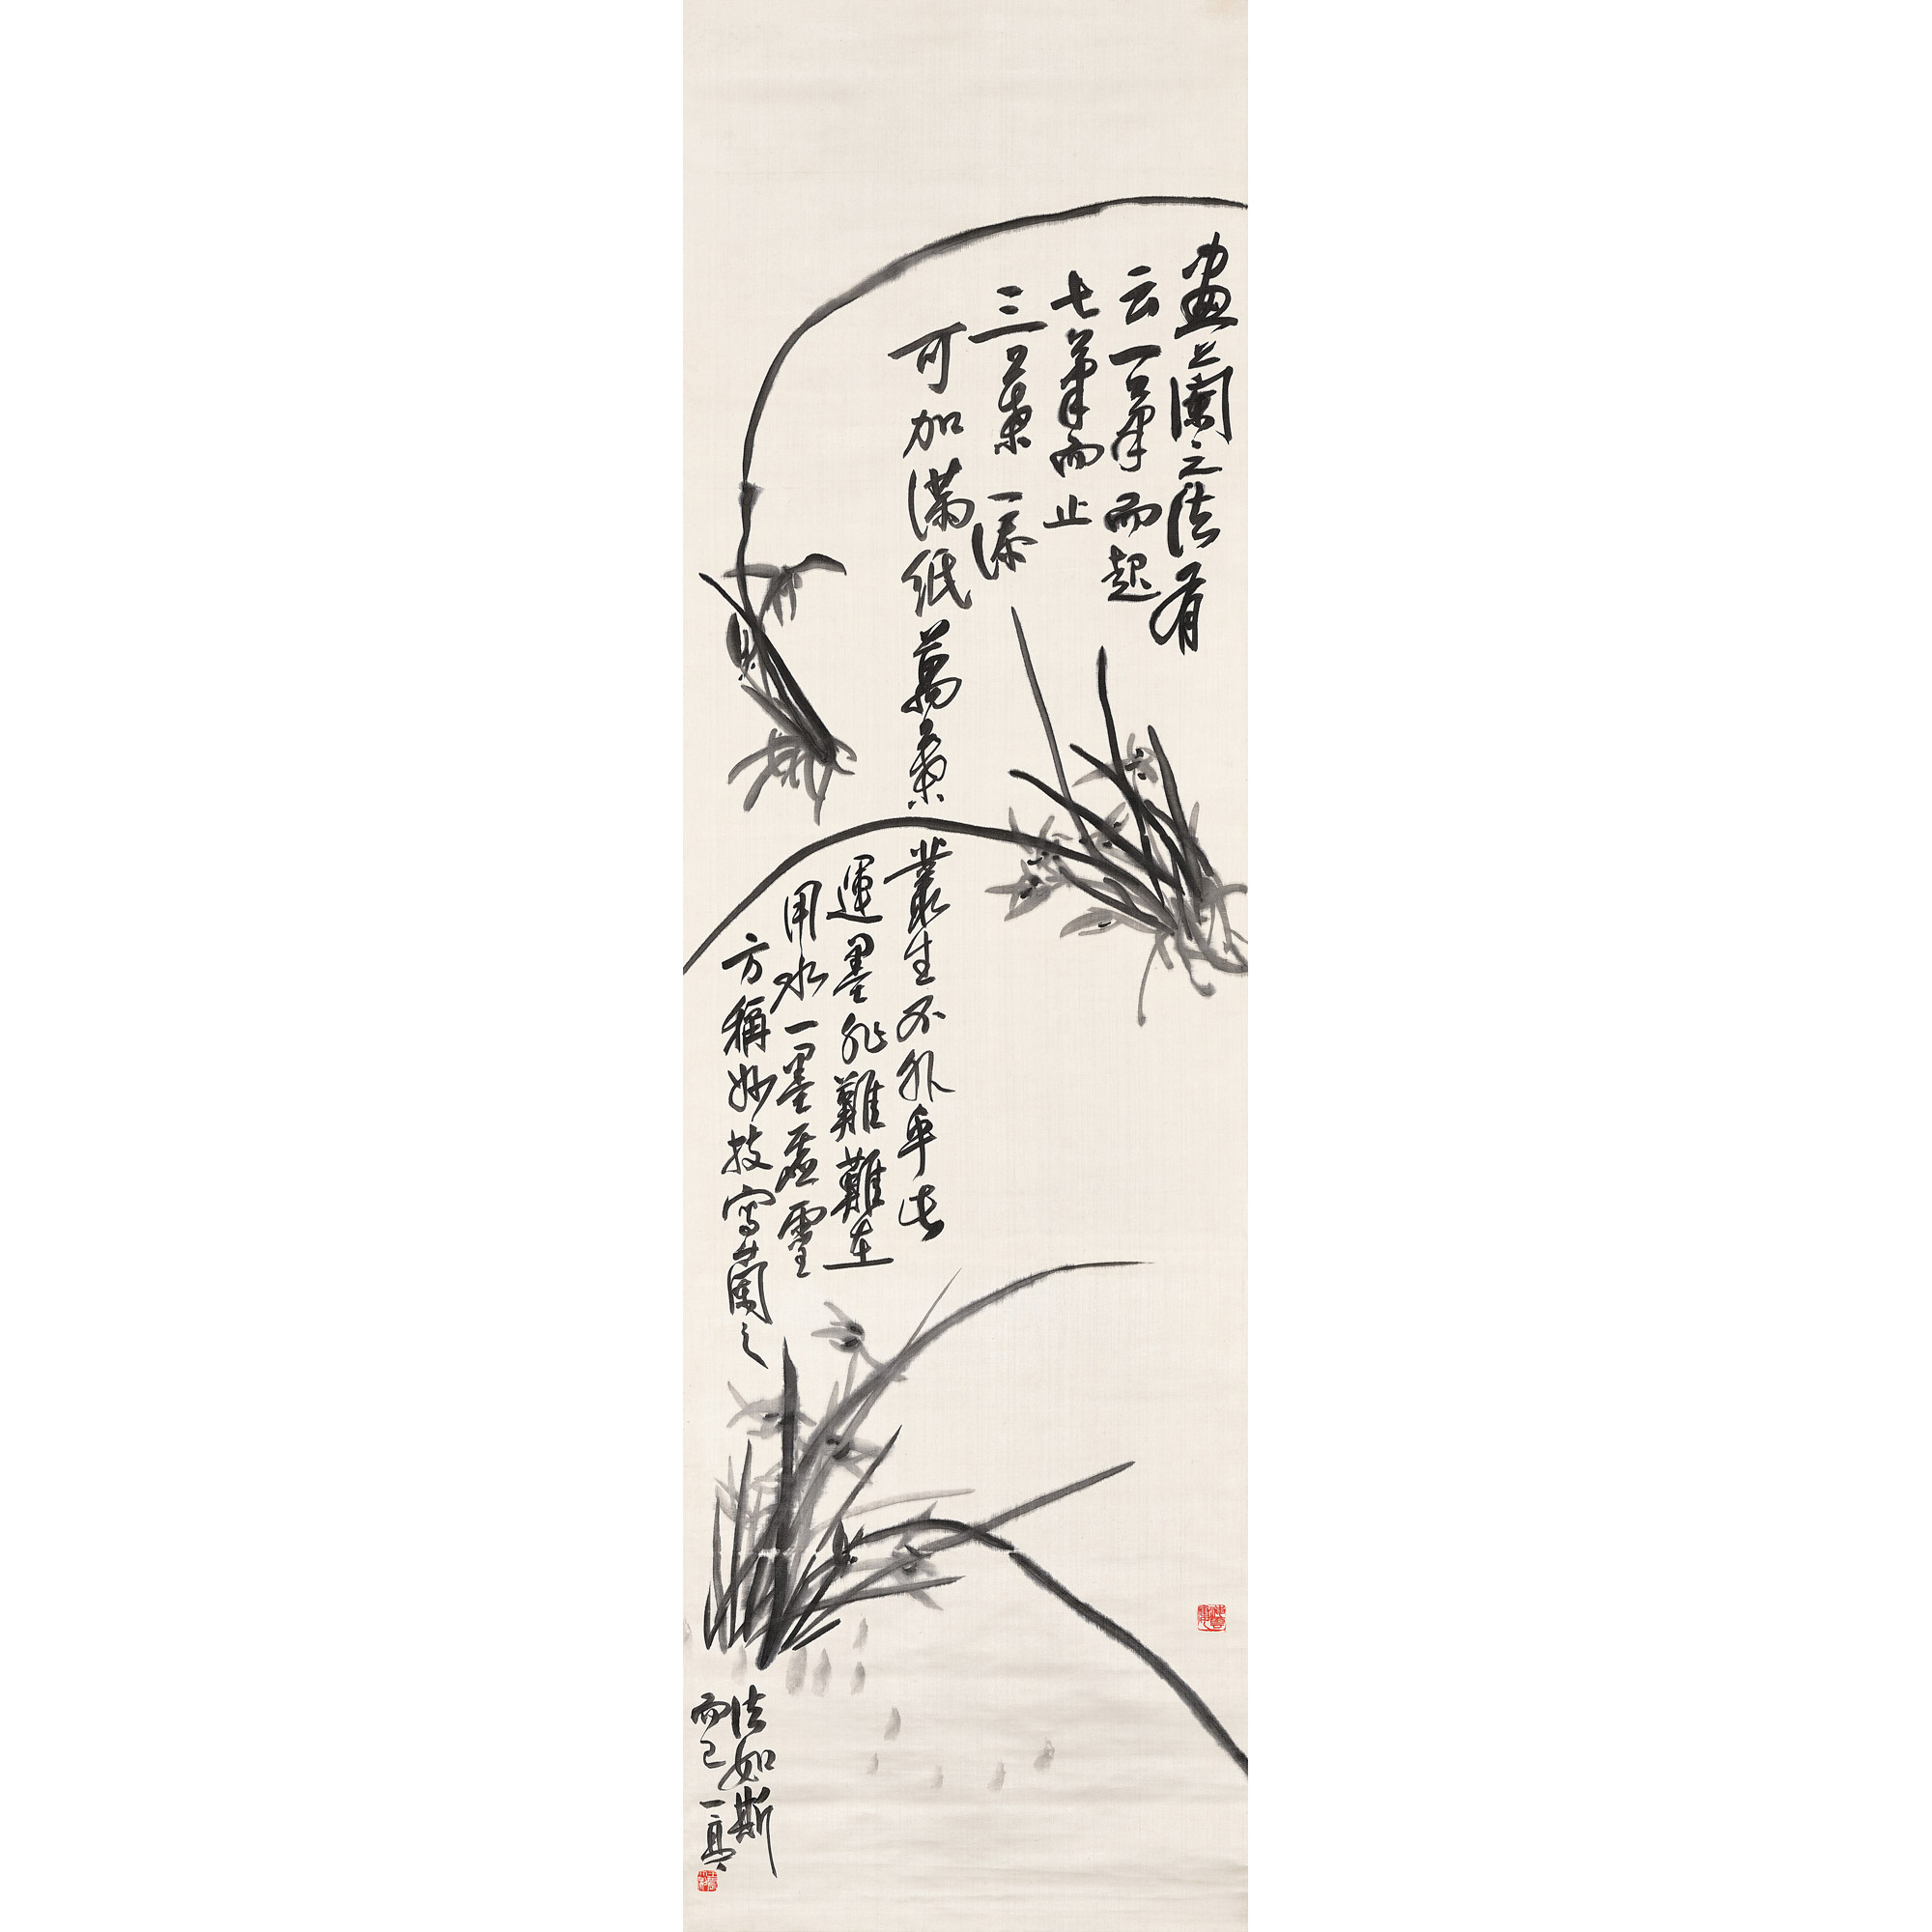 畫蘭之法有
云一筆而起
七筆而止
三葉一添
可加滿紙萬葉
叢生不外乎此
運墨非難難在
用水一墨虛靈
方稱妙技寫蘭之
法如斯
而已一真